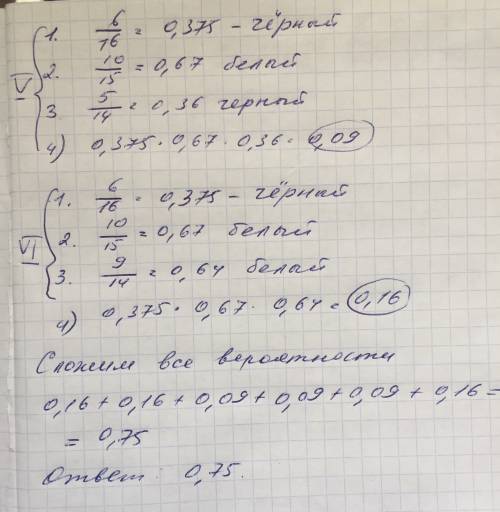 V
1. 6/16 = 0,375 - чёрный
2. 10/15 = 0,67 белый
3. 5/14 = 0,36 черный
4) 0,375 · 0,67 · 0,36 = 0,09
VI
1. 6/16 = 0,375 - чёрный
2. 10/15 = 0,67 белый
3. 9/14 = 0,64 белый
4) 0,375 · 0,67 · 0,64 = 0,16
Сложим все вероятности
0,16 + 0,16 + 0,09 + 0,09 + 0,09 + 0,16 =
= 0,75
Ответ: 0,75.